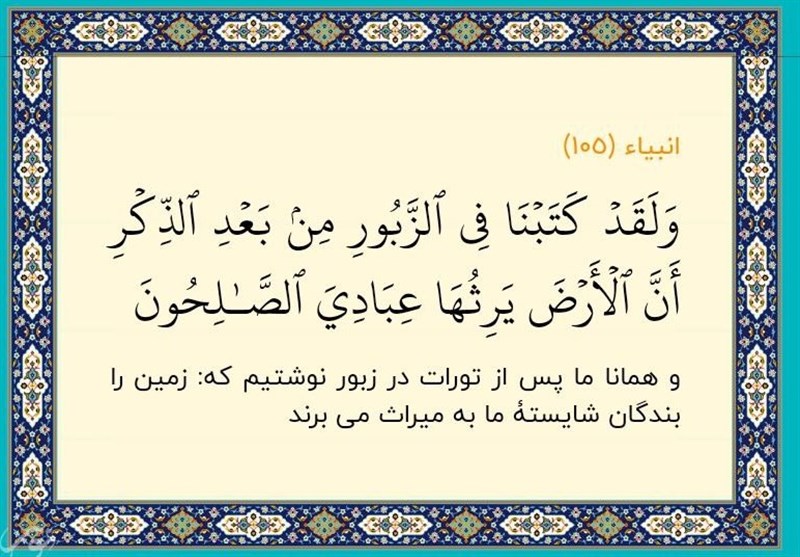 انبیاء (۱۰۵)
وَلَقَدۡ كَتَبۡنَا فِی ٱلزَّبُورِ مِنۢ بَعۡدِ ٱلذِّكۡرِ
أَنَّ ٱلۡأَرۡضَ يَرِثُهَا عِبَادِيَ ٱلصَّـٰلِحُونَ
و همانا ما پس از تورات در زبور نوشتیم که: زمین را
بندگان شایستهٔ ما به میراث می برند